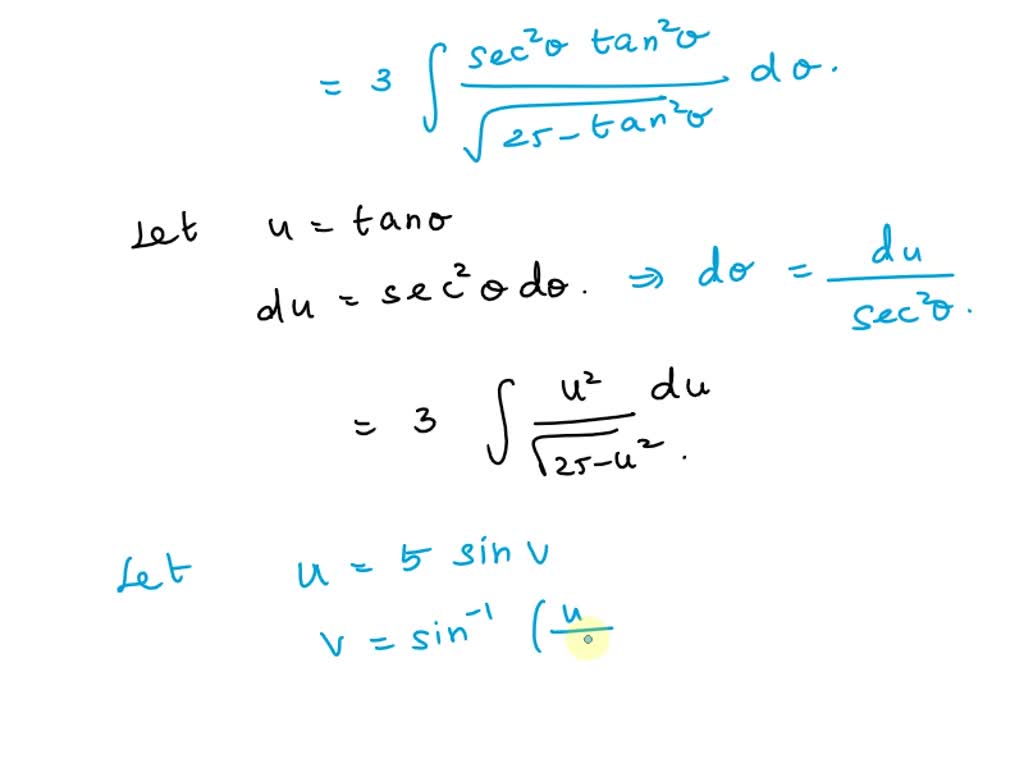 = 3 ∫ sec²θ tan²θ / √25 – tan²θ dθ.
Let u = tanθ
du = sec²θ dθ. ⇒ dθ = du / sec²θ.
= 3 ∫ u² / √25–u² du .
Let u = 5 sin v
v = sin⁻¹ (u